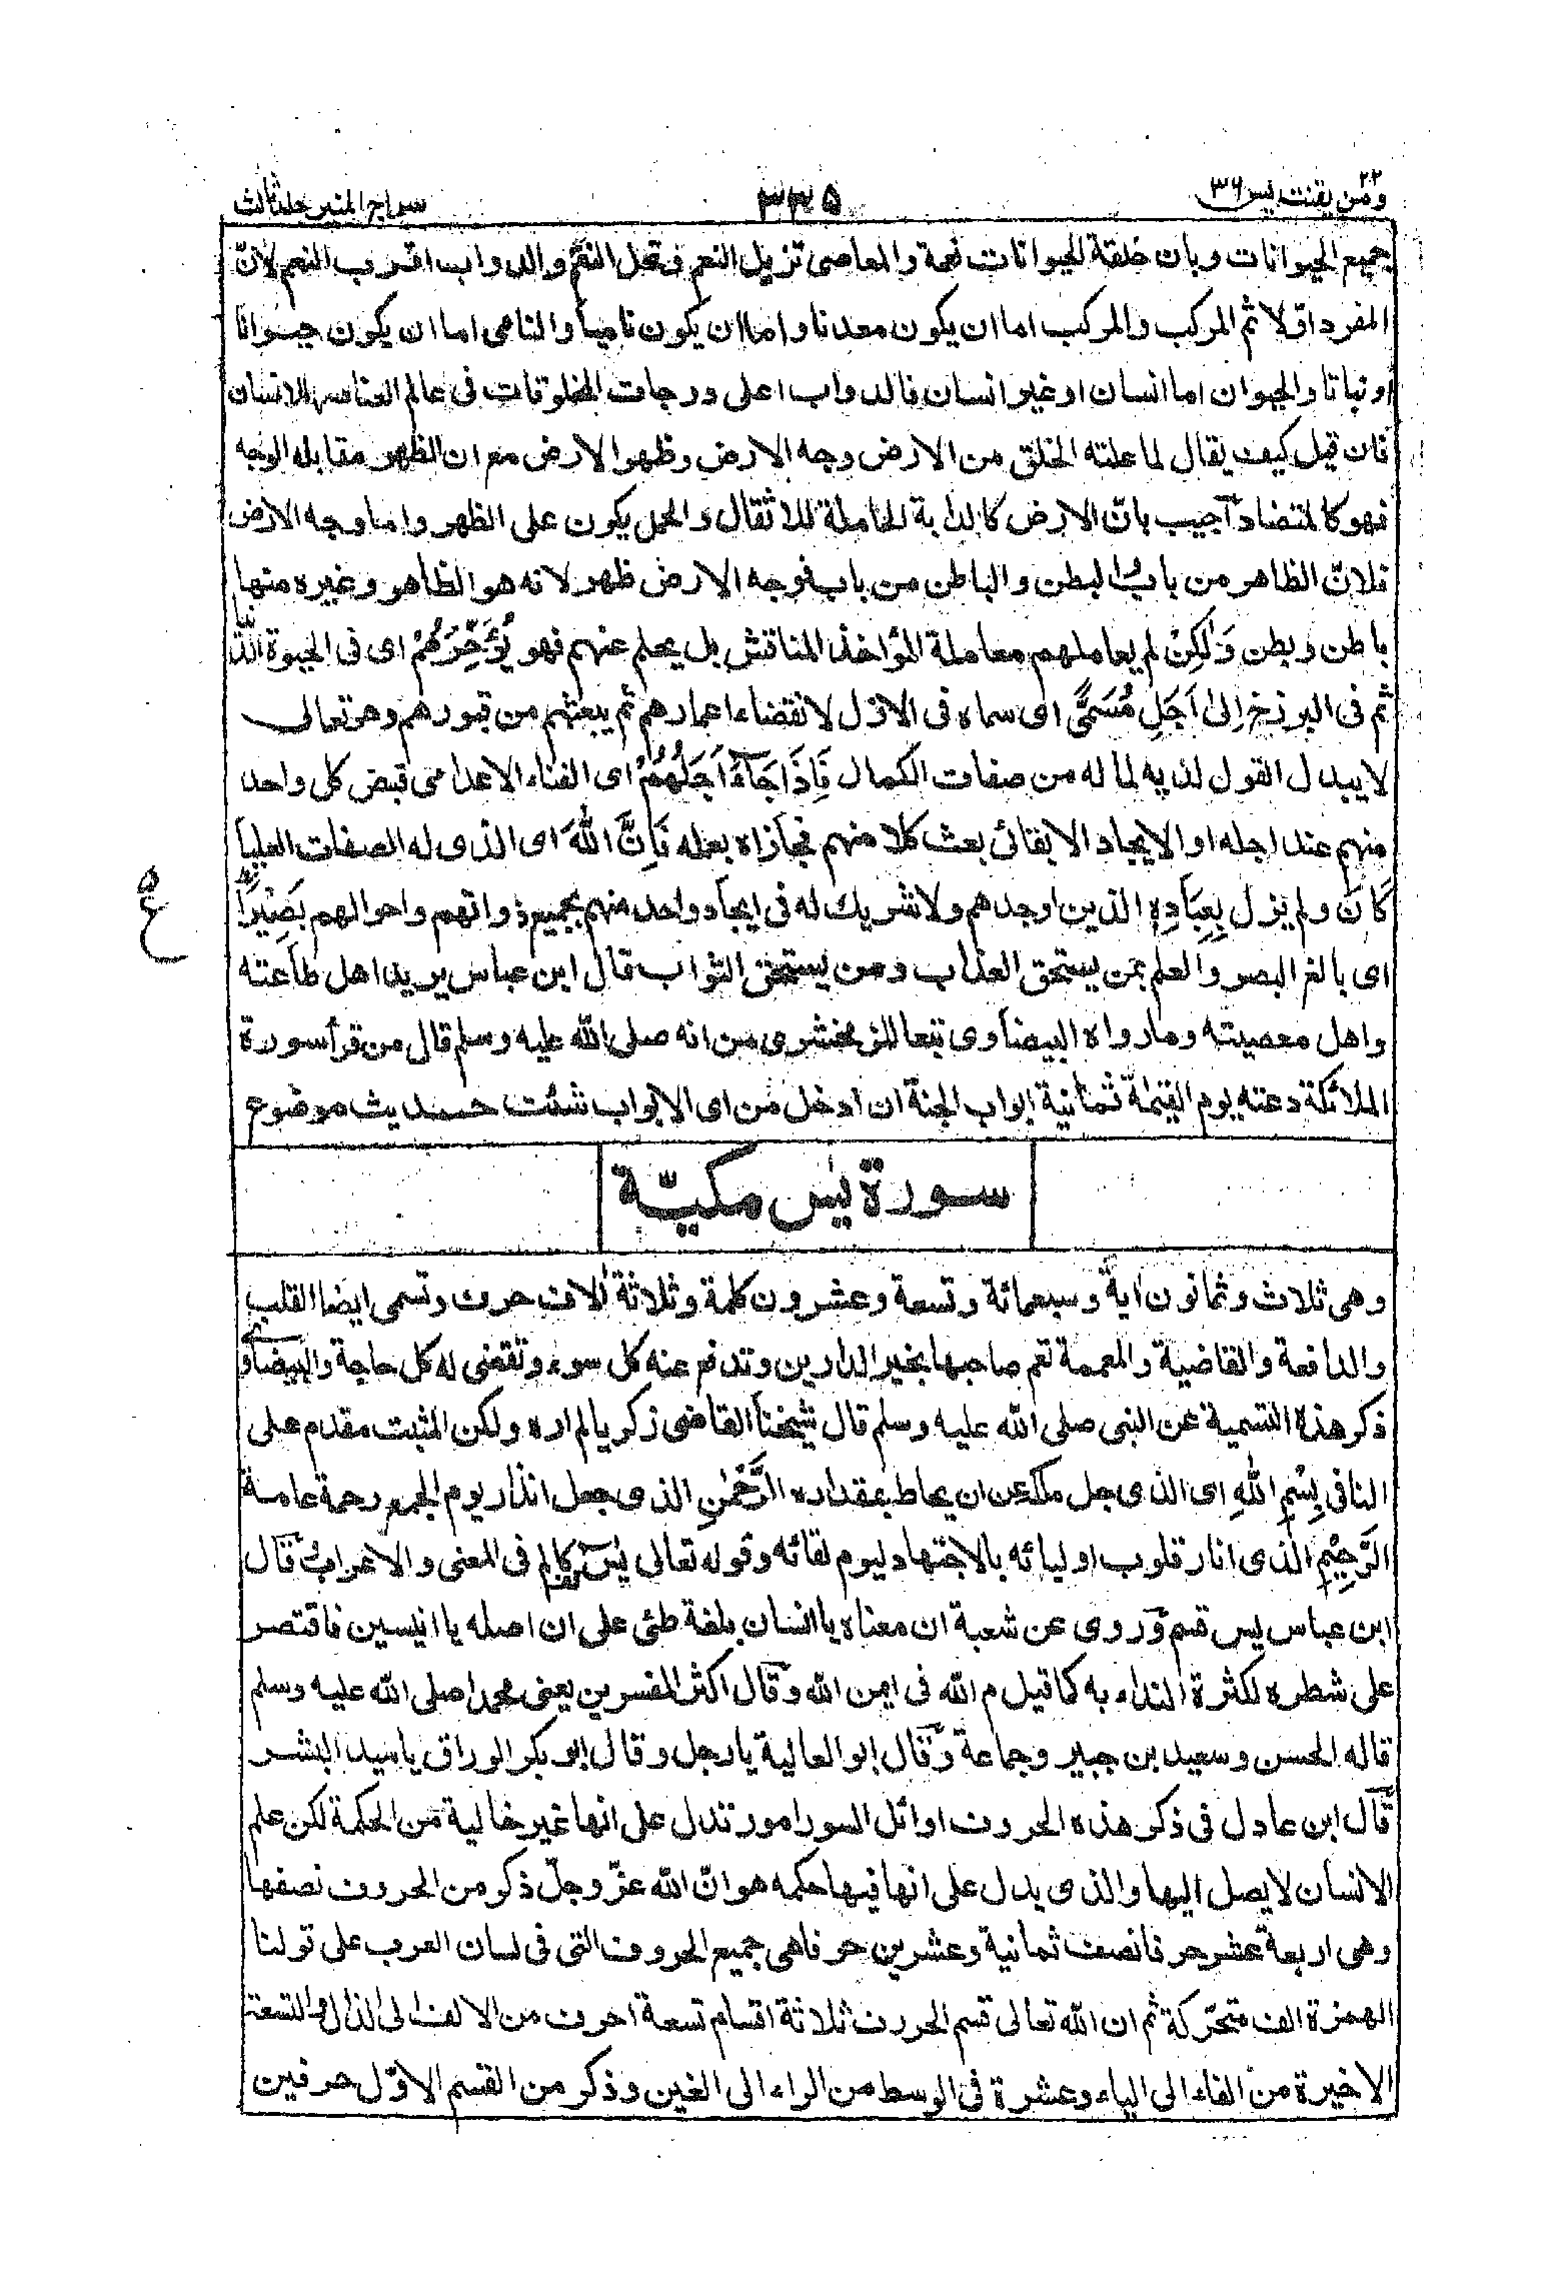 ومن يقنت ٢٢ يس ٣٦
٣٣٥
سراج المنير جلد ثالث
جميع الحيوانات وبان خلقة الحيوانات نعمة والمعاصى تزيل النعم فتحل النقم والدواب اقرب النعم لانّ
المفرد اوّلا ثم المركب والمركب اما ان يكون معدنا واما ان يكون ناميا والنامى اما ان يكون حيوانا
او نباتا والحيوان اما انسان او غير انسان فالدواب اعلى درجات المخلوقات فى عالم العناصر للانسان
فان قيل كيف يقال لما علته الخلق من الارض وجه الارض وظهر الارض مع ان الظهر مقابله الوجه
فهو كالمتضاد اجيب بانّ الارض كالدابة الحاملة للاثقال والحمل يكون على الظهر واما وجه الارض
فلانّ الظاهر من باب والبطن والباطن من باب فوجه الارض ظهر لانه هو الظاهر وغيره منها
باطن وبطن وَلٰكِنْ لم يعاملهم معاملة المؤاخذ المناقش بل يحلم عنهم فهو يُؤَخِّرُهُمْ اى فى الحيوة الدنيا
ثم فى البرزخ اِلىٰ اَجَلٍ مُّسَمًّى اى سماه فى الازل لانقضاء اعمارهم ثم يبعثهم من قبورهم وهو تعالى
لا يبدل القول لديه لما له من صفات الكمال فَاِذَا جَآءَ اَجَلُهُمْ اى الفناء الاعدامى قبض كل واحد
منهم عند اجله او الايجاد الابقائى بعث كلا منهم فجازاه بعمله فَاِنَّ اللّٰهَ اى الذى له الصفات العليا
كَانَ ولم يزل بِعِبَادِهٖ الذين اوجدهم ولا شريك له فى ايجاد واحد منهم بجميع ذواتهم واحوالهم بَصِيْرًا
اى بالغ البصر والعلم بمن يستحق العذاب ومن يستحق الثواب قال ابن عباس يريد اهل طاعته
واهل معصيته وما رواه البيضاوى تبعا للزمخشرى من انه صلى الله عليه وسلم قال من قرأ سورة
الملائكة دعته يوم القيٰمة ثمانية ابواب الجنة ان ادخل من اى الابواب شئت حديث موضوع
ع
سورة يٰس مكيّة
وهى ثلاث وثمانون اية وسبعمائة وتسعة وعشرون كلمة وثلاثة اٰلاف حرف وتسمى ايضا القلب
والدافعة والقاضية والمعممة تعم صاحبها بخير الدارين وتدفع عنه كل سوء وتقضى له كل حاجة والبيضاوى
ذكر هذه التسمية عن النبى صلى الله عليه وسلم قال شيخنا القاضى زكريا لم اره ولكن المثبت مقدم على
النافى بِسْمِ اللّٰهِ اى الذى جل ملكه عن ان يحاط بمقداره الرَّحْمٰنِ الذى جعل انذار يوم الجمع رحمة عامة
الرَّحِيْمِ الذى انار قلوب اوليائه بالاجتهاد ليوم لقائه وقوله تعالى يٰسٓ كالم فى المعنى والاعراب قال
ابن عباس يس قسم وروى عن شعبة ان معناه يا انسان بلغة طئى على ان اصله يا انيسين فاقتصر
على شطره لكثرة النداء به كما قيل م الله فى ايمن الله وقال اكثر المفسرين يعنى محمدا صلى الله عليه وسلم
قاله الحسن وسعيد بن جبير وجماعة وقال ابو العالية يا رجل وقال ابو بكر الوراق يا سيد البشر
قال ابن عادل فى ذكر هذه الحروف اوائل السور امور تدل على انها غير خالية من الحكمة لكن علم
الانسان لا يصل اليها والذى يدل على انها فيها حكمه هو انّ الله عزّ وجلّ ذكر من الحروف نصفها
وهى اربعة عشر حرفا نصف ثمانية وعشرين حرفا هى جميع الحروف التى فى لسان العرب على قولنا
الهمزة الف متحرّكة ثم ان الله تعالى قسم الحروف ثلاثة اقسام تسعة احرف من الالف الى الذال والتسعة
الاخيرة من الفاء الى الياء وعشرة فى الوسط من الراء الى الغين وذكر من القسم الاوّل حرفين